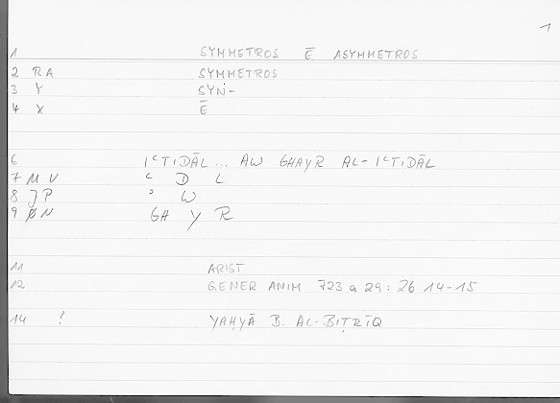 1
1 SYMMETROS Ē ASYMMETROS
2 RA SYMMETROS
3 Y SYN-
4 X Ē
6 IʿTIDĀL ... AW GHAYR AL-IʿTIDĀL
7 MV ʿ D L
8 JP ʾ W
9 ØN GH Y R
11 ARIST
12 GENER ANIM 723 a 29 : 26 14-15
14 ? YAḤYĀ B. AL-BIṬRĪQ